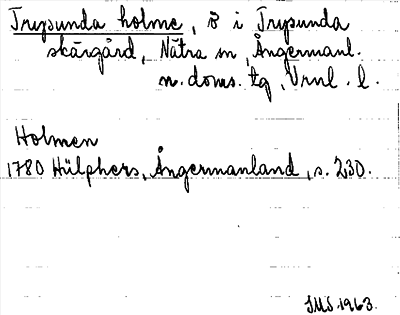 Trysunda holme, ö i Trysunda
skärgård, Nätra sn, Ångermanl.
n. doms. tg, Vrnl. l.
Holmen
1780 Hülphers, Ångermanland, s. 230.
1963.